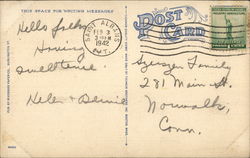 THIS SPACE FOR WRITING MESSAGES
Hello folks
Having
swell time.
Helen &
POST
CARD
SAINT ALBANS
FEB 3
1942
VT.
Family
281 Main St.
Norwalk,
Conn.